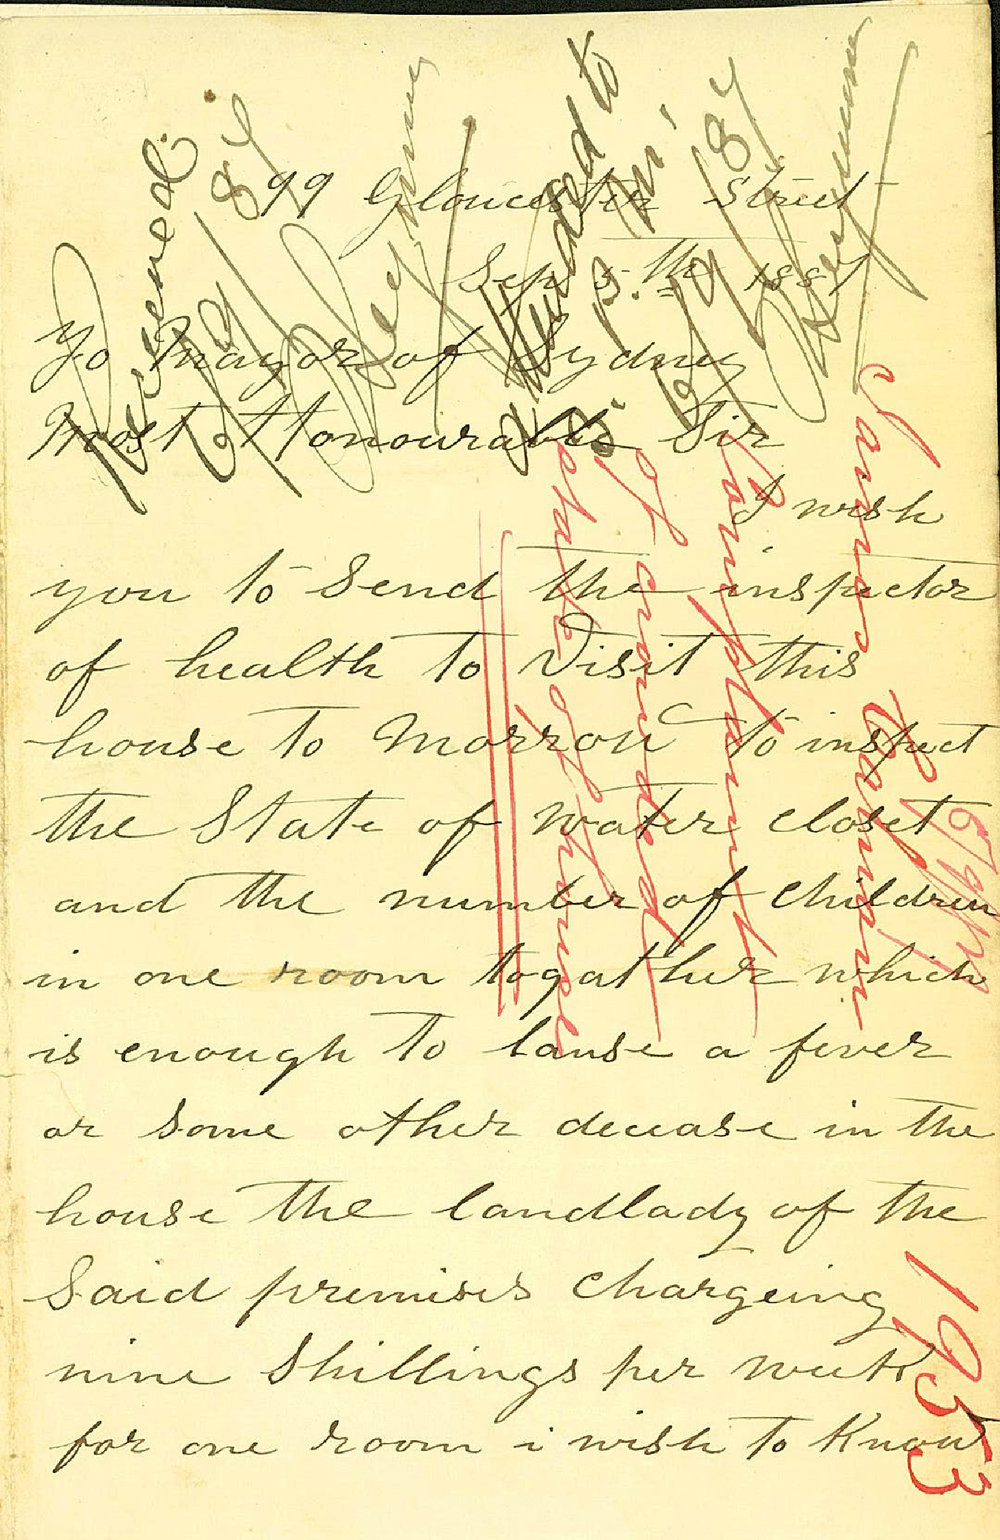 99 Gloucester Street
Sep 5.th 1887
To Mayor of Sydney
Most Honourable Sir
I wish
you to Send the inspector
of health to Visit this
house to Morrow to inspect
the State of water closet
and the number of children
in one room togather which
is enough to Cause a fever
or Some other decease in the
house the landlady of the
Said premises chargeing
nine Shillings per week
for one room i wish to Know
attended to
6/9/87
6/9/87
James
Complaint
of crowded
state of house
5/9/87
1953